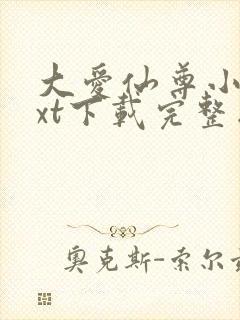 大爱仙尊小
xt下载完整
奥克斯-索尔